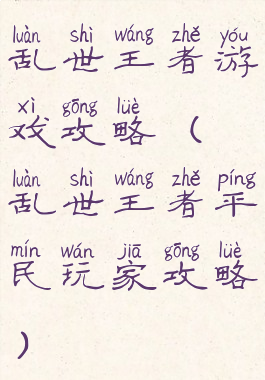 luàn shì wáng zhě yóu
乱世王者游
xì gōng lüè
戏攻略（
luàn shì wáng zhě píng
乱世王者平
mín wán jiā gōng lüè
民玩家攻略
）